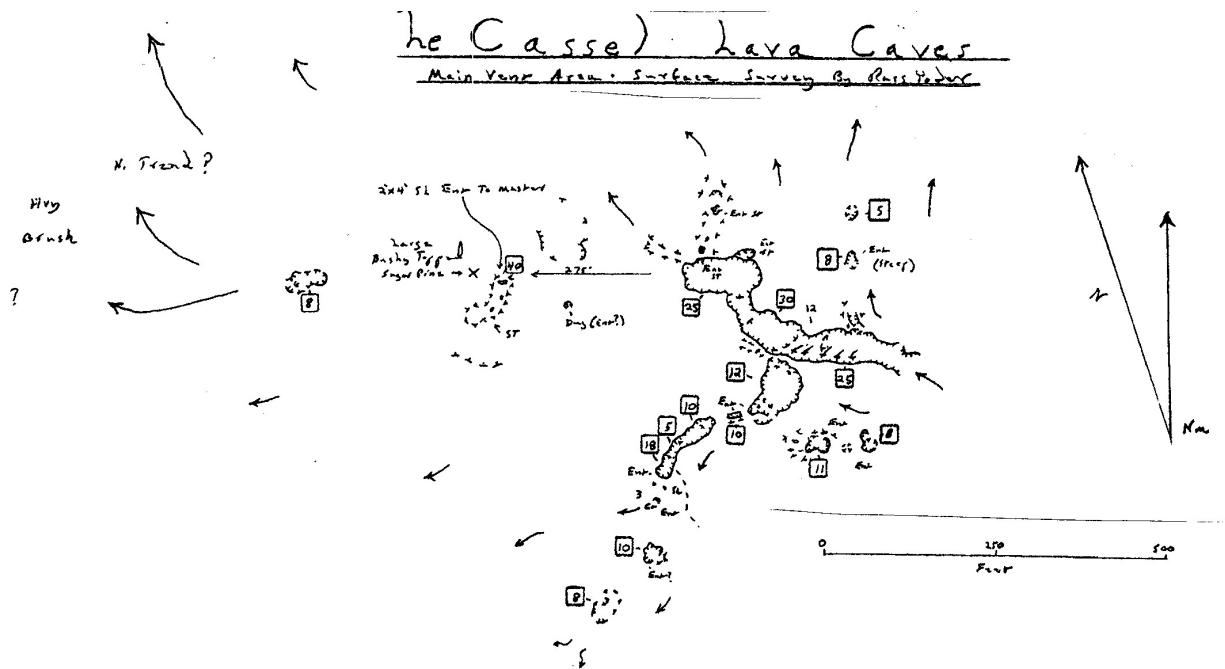 he Casse) Lava Caves
Main Vent Area · Surface Survey By Russ Yoder
N. Trend?
Hvy
Brush
?
2'x4' SL Ent To Master
Large
Bushy Topp
Sugar Pine → X
40
275'
8
ST
Dug (Ent?)
Ent ST
Ent
ST
Ent
ST
25
30
12
25
5
8
Ent
(Steep)
12
Ent
10
10
5
18
Ent
SL
3
Ent
Ent
8
Ent
11
10
Ent?
8
N
Nm
0 250 500
Feet